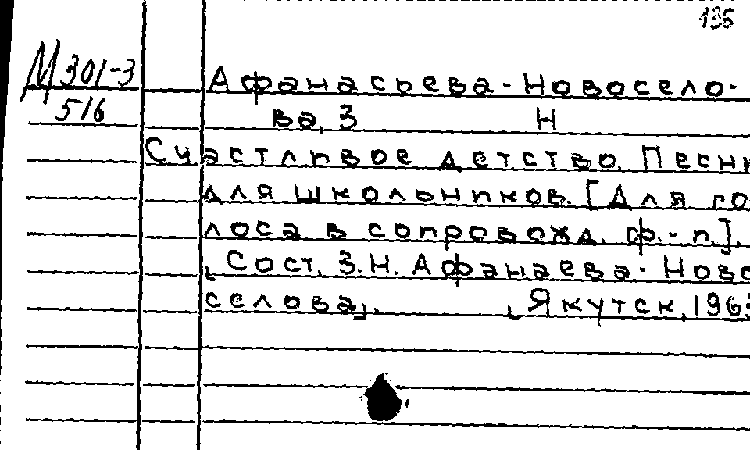 195
М 301-3
516
Афанасьева-Новосело-
ва, З Н
Счастливое детство. Песни
для школьников. [Для го-
лоса в сопровожд. ф.-п.].
[Сост. З.Н. Афанаева-Ново
селова]. [Якутск, 1965